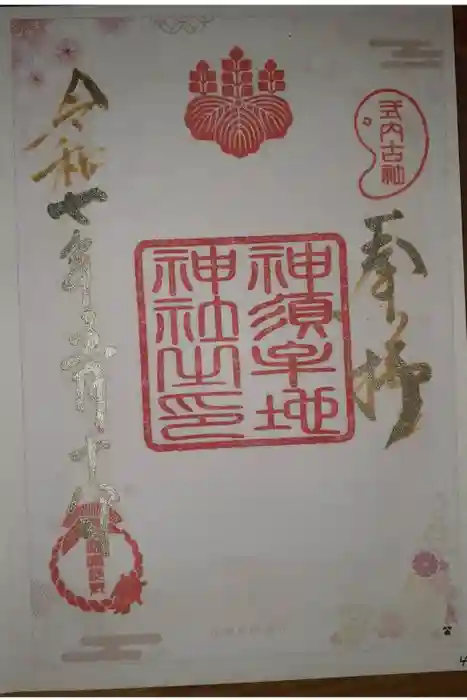 式内古社
奉拝
神須牟地
神社之印
令和七年 月十 日